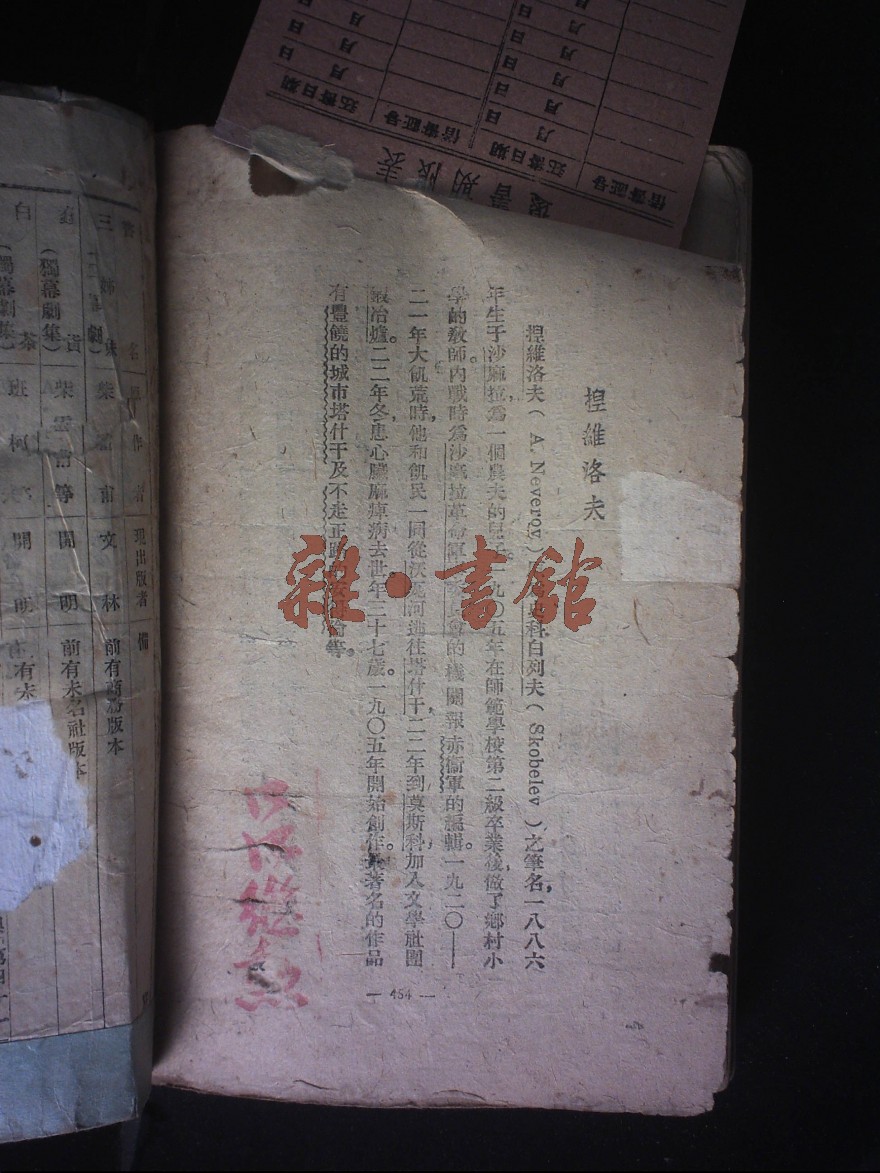 揑維洛夫
揑維洛夫（A. Neverov）科白列夫（Skobelev）之筆名，一八八六
年生于沙麻拉，爲一個農夫的兒子。一九〇五年在師範學校第二級卒業後，做了鄉村小
學的敎師。內戰時爲沙麻拉革命軍的機關報赤衞軍的編輯。一九二〇——
二一年大飢荒時，他和飢民一同從沃河逃往塔什干，二二年到莫斯科，加入文學社團
鍛冶爐。二二年冬，患心臟麻痺病去世，年三十七歲。一九〇五年開始創作，著名的作品
有豐饒的城市塔什干及不走正路等。
— 454 —
雜·書館
還書期限表
借書証号 还書日期 借書証号 还書日期
月 日 月 日
月 日 月 日
月 日 月 日
月 日 月 日
月 日 月 日
書 名 原作者 現出版者 備
三姊妹 （四幕劇） 柴霍甫 文林 前有商務版本
（獨幕劇集） 柴霍甫等 開明 前有未名社版本
白茶 （獨幕劇集） 班珂 開明 有未